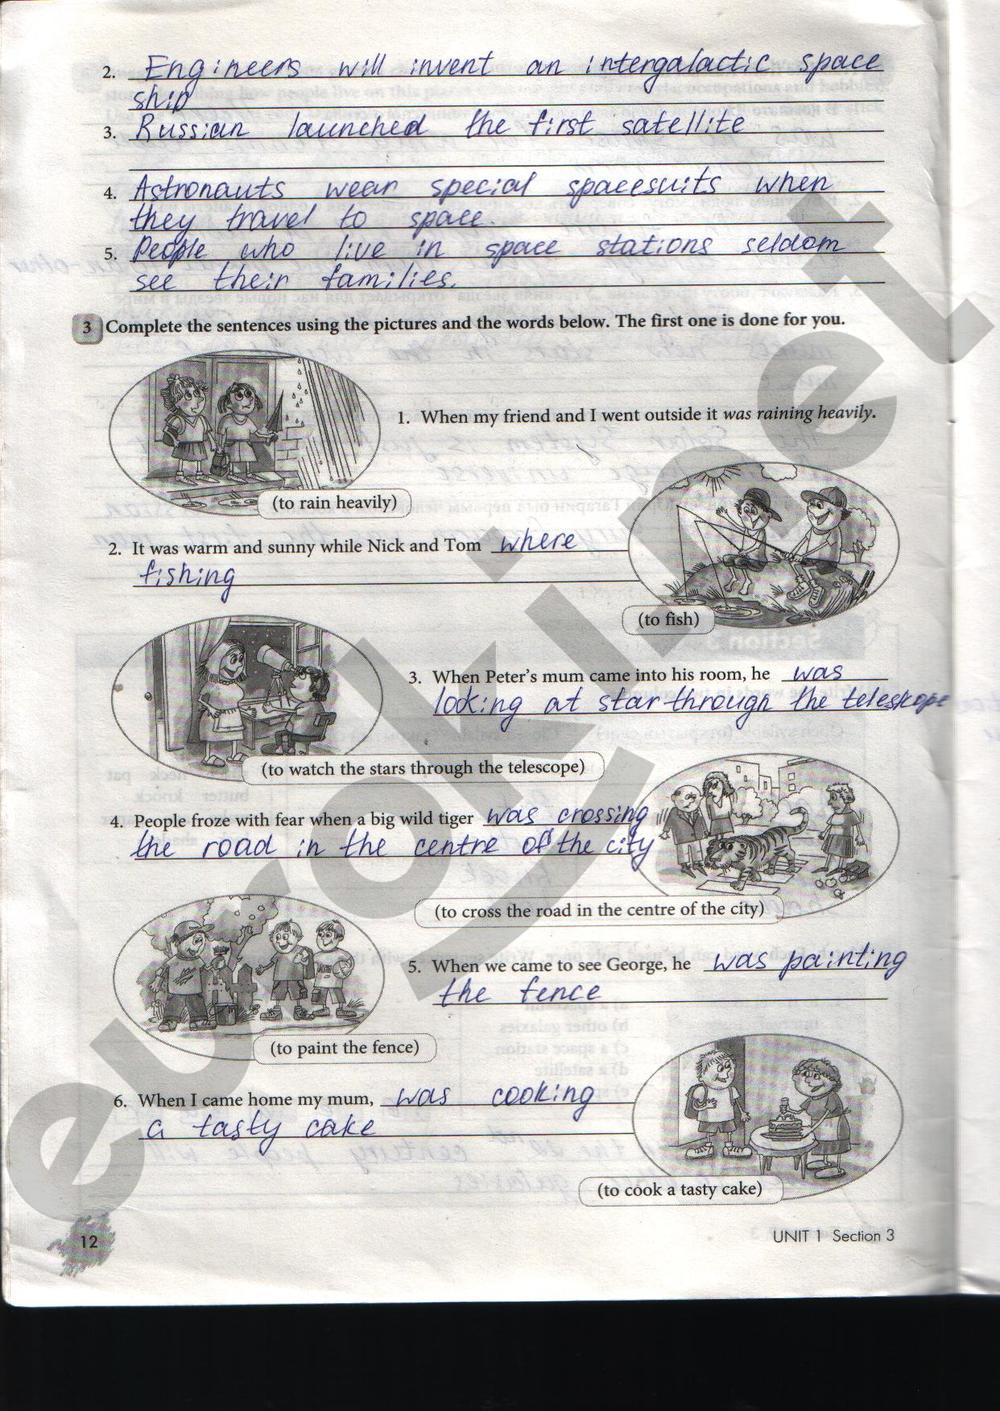 2. Engineers will invent an intergalactic space
ship
3. Russian launched the first satellite
4. Astronauts wear special spacesuits when
they travel to space.
5. People who live in space stations seldom
see their families.
3 Complete the sentences using the pictures and the words below. The first one is done for you.
1. When my friend and I went outside it was raining heavily.
(to rain heavily)
2. It was warm and sunny while Nick and Tom where
fishing
(to fish)
3. When Peter's mum came into his room, he was
looking at star through the teleskope
(to watch the stars through the telescope)
4. People froze with fear when a big wild tiger was crossing
the road in the centre of the city
(to cross the road in the centre of the city)
5. When we came to see George, he was painting
the fence
(to paint the fence)
6. When I came home my mum, was cooking
a tasty cake
(to cook a tasty cake)
12
UNIT 1 Section 3
euroki.net